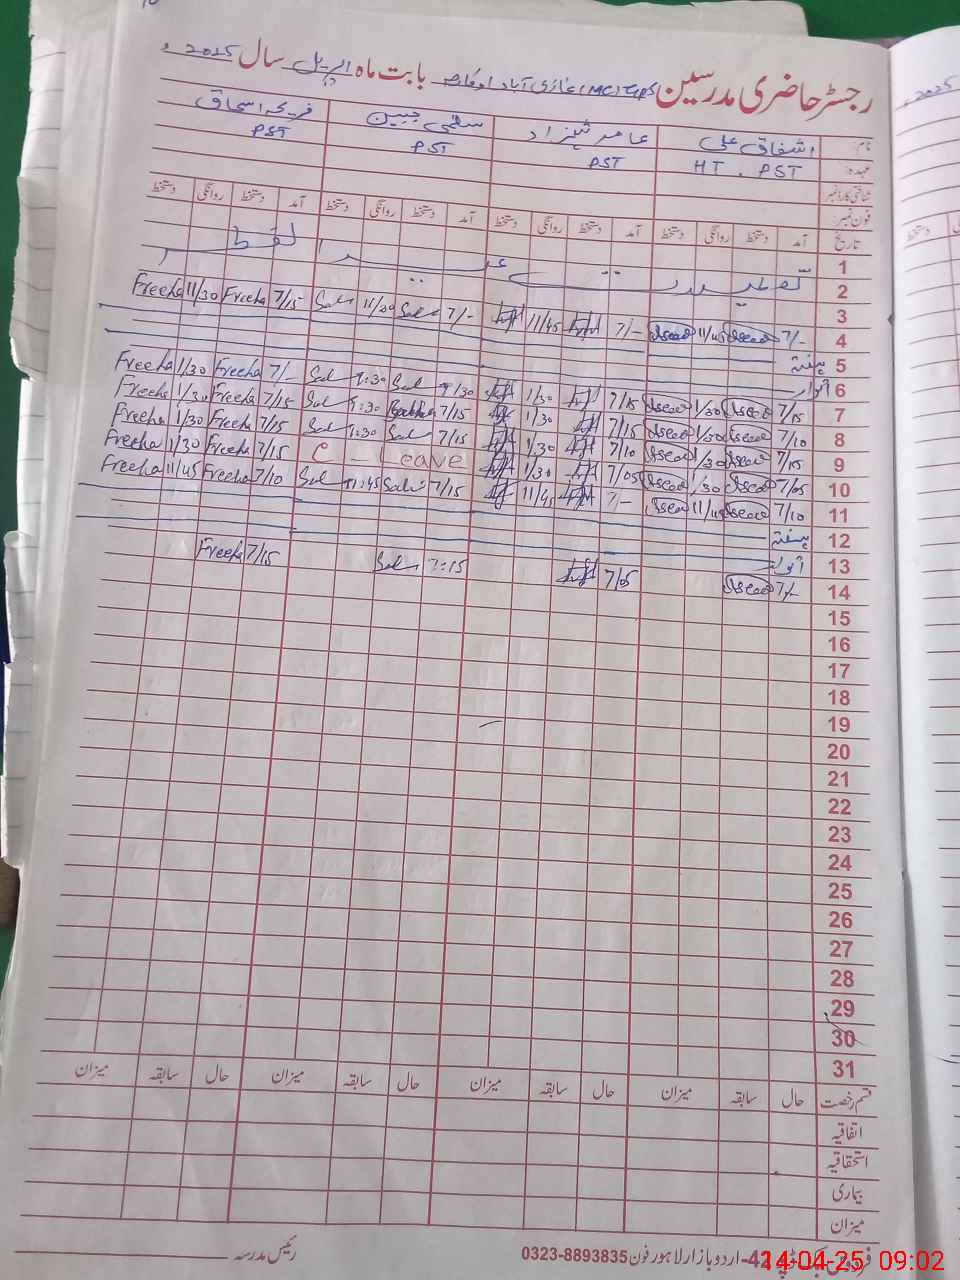 رجسٹر حاضری مدرسین GPS (MC) غازی آباد اوکاڑہ بابت ماہ اپریل سال 2025ء
نام: اشفاق علی عامر شہزاد سلمٰی جبین فریحہ اسحاق
عہدہ: HT . PST PST PST PST
شناختی کارڈ نمبر
فون نمبر:
تاریخ آمد دستخط روانگی دستخط آمد دستخط روانگی دستخط آمد دستخط روانگی دستخط آمد دستخط روانگی دستخط
1
2 تعطیلات عید الفطر
3
4 7/- 11/45 7/- 11/45 7/- Sal 11/30 Sal 7/15 Freeha 11/30 Freeha
5 ہفتہ
6 اتوار
7 7/15 1/30 7/15 1/30 Sal 1:30 Sal 7/- Freeha 1/30 Freeha
8 7/10 1/30 7/15 1/30 7/15 1:30 Sal 7/15 Freeha 1/30 Freeha
9 7/15 1/30 7/10 1/30 7/15 Sal 1:30 Sal 7/15 Freeha 1/30 Freeha
10 7/05 1/30 7/05 1/30 C - Leave 7/15 Freeha 1/30 Freeha
11 7/10 11/45 7/- 11/45 7/15 Sal 11:45 Sal 7/10 Freeha 11/45 Freeha
12 ہفتہ
13 اتوار
14 7/- 7/05 7:15 Sal 7/15 Freeha
15
16
17
18
19
20
21
22
23
24
25
26
27
28
29
30
31
قسم رخصت حال سابقہ میزان حال سابقہ میزان حال سابقہ میزان حال سابقہ میزان
اتفاقیہ
استحقاقیہ
بیماری
میزان
رئیس مدرسہ
42-اردو بازار لاہور فون 0323-8893835
14-04-25 09:02